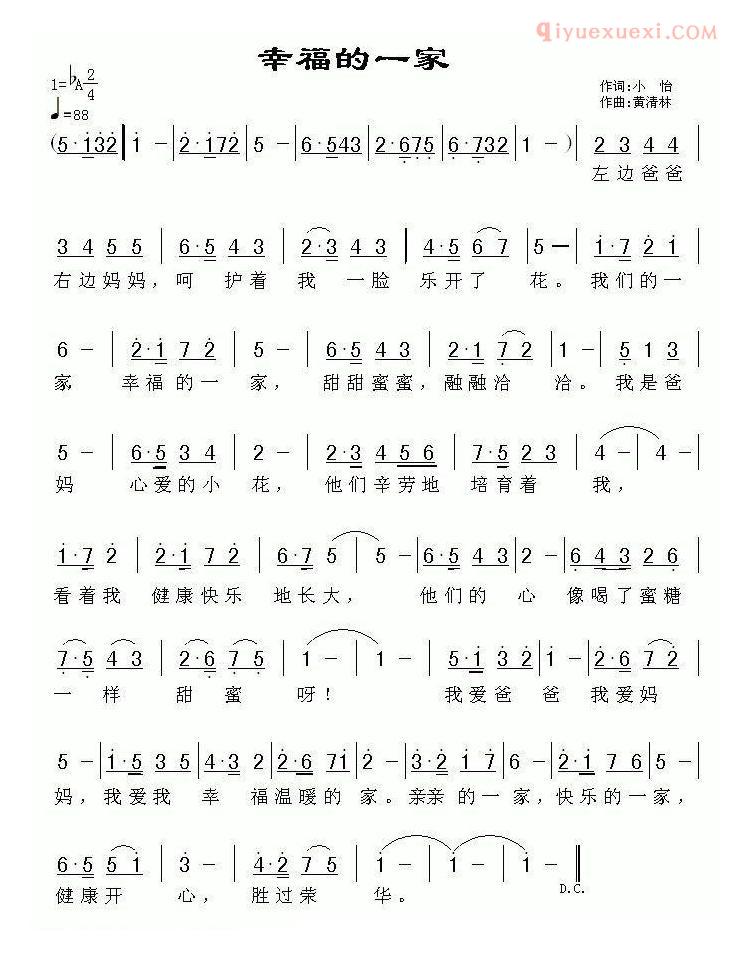 qiyuexuexi.com
幸福的一家
1=♭A 2/4
♩=88
作词:小 怡
作曲:黄清林
(5·i32 | i - | 2·i72 | 5 - | 6·543 | 2·675 | 6·732 | 1 - ) | 2 3 4 4 |
左边爸爸
3 4 5 5 | 6·5 4 3 | 2·3 4 3 | 4·5 6 7 | 5 — | i·7 2 i |
右边妈妈，呵 护着 我 一脸 乐开了 花。我们的一
6 - | 2·i 7 2 | 5 - | 6·5 4 3 | 2·1 7 2 | 1 - | 5 1 3 |
家 幸福的一 家，甜甜蜜蜜，融融洽 洽。我是爸
5 - | 6·5 3 4 | 2 - | 2·3 4 5 6 | 7·5 2 3 | 4 - | 4 - |
妈 心爱的小 花，他们辛劳地 培育着 我，
i·7 2 | 2·i 7 2 | 6·7 5 | 5 - | 6·5 4 3 | 2 - | 6 4 3 2 6 |
看着我 健康快乐 地长大，他们的 心 像喝了蜜糖
7·5 4 3 | 2·6 7 5 | 1 - | 1 - | 5·1 3 2 | 1 - | 6·5 7 2 |
一 样 甜 蜜 呀！ 我爱爸 爸 我爱妈
5 - | i·5 3 5 | 4·3 2 | 2·6 7i | 2 - | 3·2 i 7 | 6 - | 2·i 7 6 | 5 - |
妈，我爱我 幸 福温暖的 家。亲亲的一 家，快乐的一家，
6·5 5 i | 3 - | 4·2 7 5 | i - | i - | i - ‖
健康开 心，胜过荣 华。
D.C.